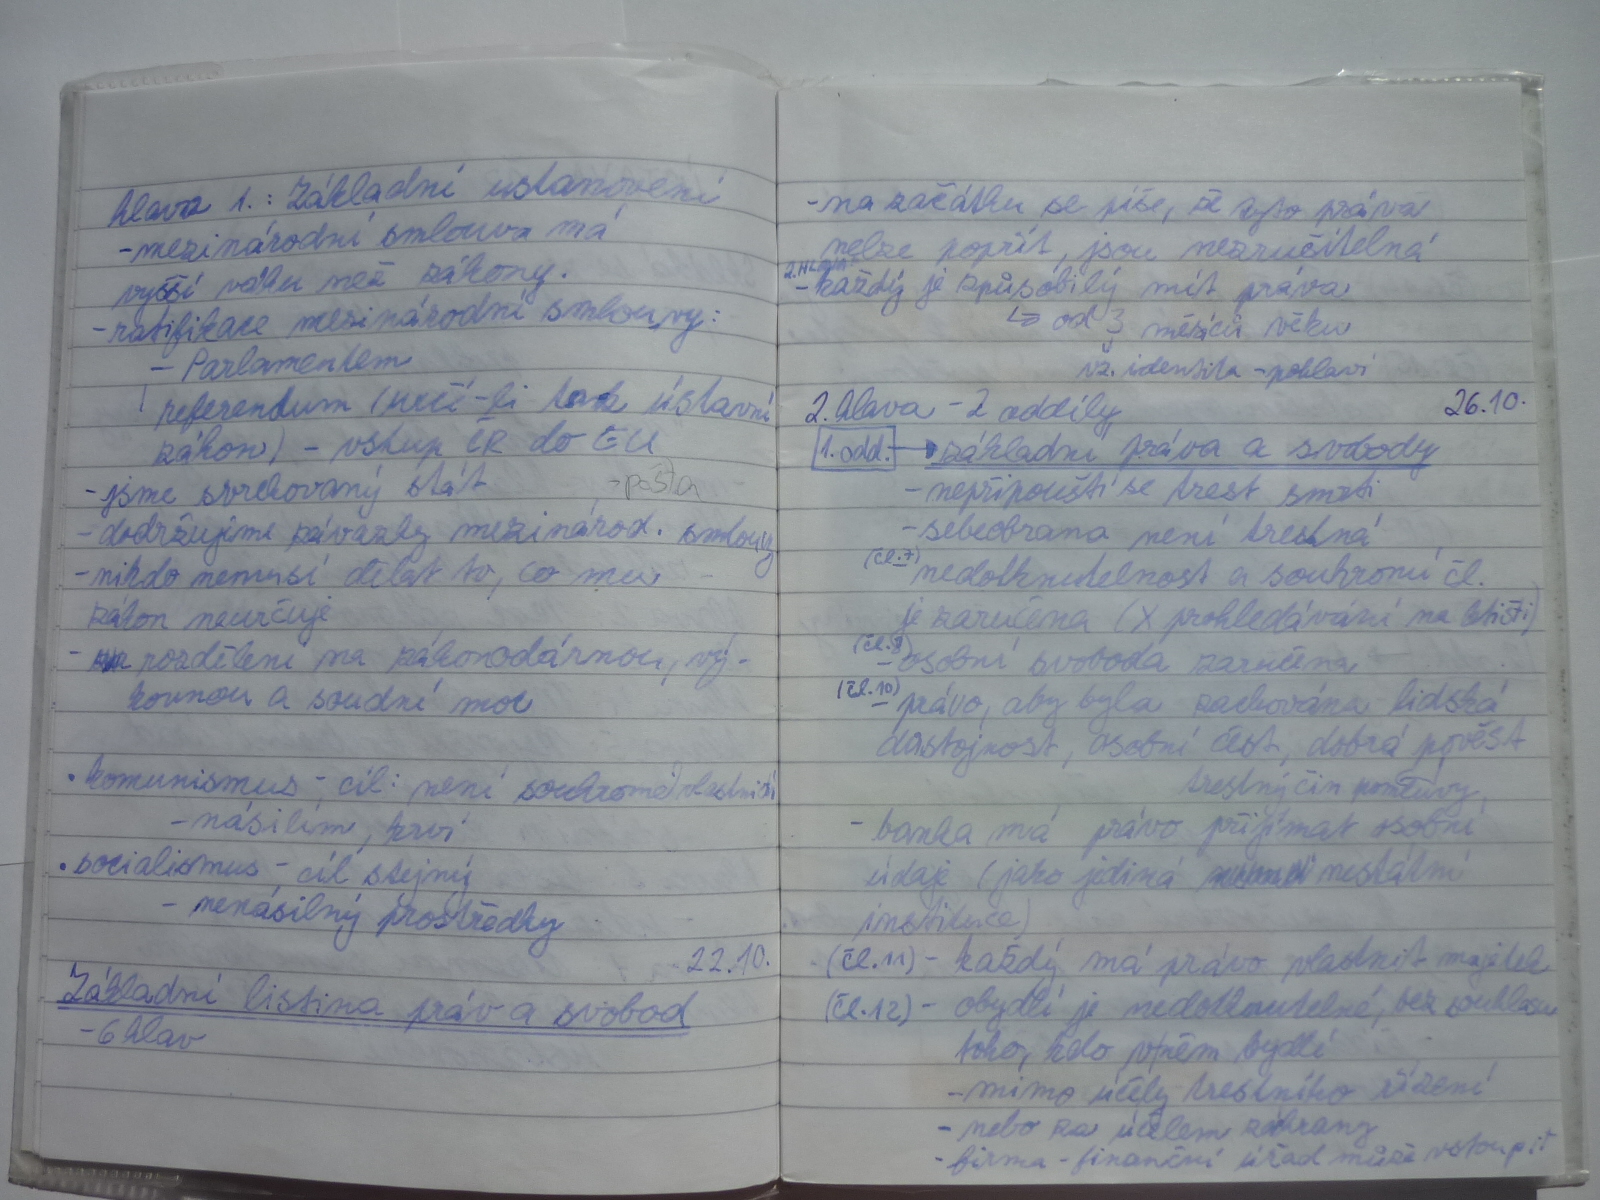 hlava 1.: Základní ustanovení
- mezinárodní smlouva má
vyšší váhu než zákony.
- ratifikace mezinárodní smlouvy:
- Parlamentem
referendum (určí-li tak ústavní
zákon) - vstup ČR do EU
- jsme svrchovaný stát
- pošta
- dodržujeme závazky mezinárod. smlouvy
- nikdo nemusí dělat to, co mu
zákon neurčuje
- rozdělení na zákonodárnou, vý-
konnou a soudní moc
• komunismus - cíl: není soukromé vlastnictví
- násilím, krví
• socialismus - cíl stejný
- nenásilný prostředky
22.10.
Základní listina práv a svobod
- 6 hlav
- na začátku se píše, že tyto práva
nelze popřít, jsou nezrušitelná
2. HLAVA
- každý je způsobilý mít práva
↳ od 3 měsíců věku
vz. identita - pohlaví
2. hlava - 2 oddíly 26.10.
1. odd. → základní práva a svobody
- nepřipouští se trest smrti
- sebeobrana není trestná
(čl. 7) - nedotknutelnost a soukromí čl.
je zaručena (X prohledávání na letišti)
(čl. 8) - osobní svoboda zaručena
(čl. 10) - právo, aby byla zachována lidská
dustojnost, osobní čest, dobrá pověst
trestný čin pomluvy
- banka má právo přijímat osobní
údaje (jako jediná nestátní
instituce)
(čl. 11) - každý má právo vlastnit majetek
(čl. 12) - obydlí je nedotknutelné, bez souhlasu
toho, kdo v něm bydlí
- mimo účely trestního řízení
- nebo za účelem záhrany
- firma - finanční úřad může vstoupit